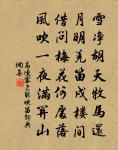 雪净胡天牧馬還
月明羌笛戍樓間
借問梅花何處落
風吹一夜滿關山
高適塞上聽吹笛詞典
網集